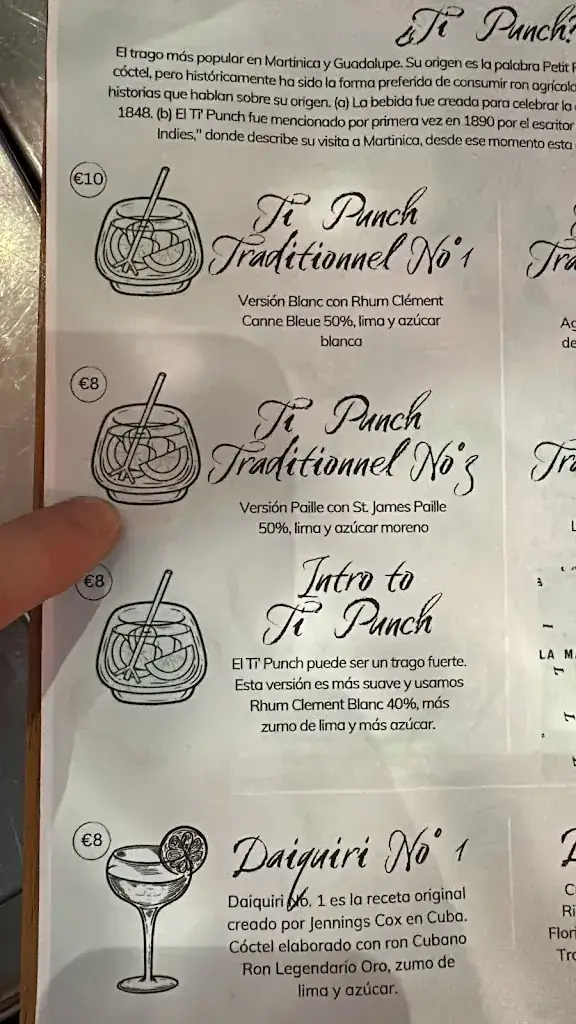 ¿Ti Punch?
El trago más popular en Martinica y Guadalupe. Su origen es la palabra Petit
cóctel, pero históricamente ha sido la forma preferida de consumir ron agrícola
historias que hablan sobre su origen. (a) La bebida fue creada para celebrar la
1848. (b) El Ti' Punch fue mencionado por primera vez en 1890 por el escritor
Indies," donde describe su visita a Martinica, desde ese momento esta
€10
Ti Punch
Traditionnel No°1
Versión Blanc con Rhum Clément
Canne Bleue 50%, lima y azúcar
blanca
€8
Ti Punch
Traditionnel No°3
Versión Paille con St. James Paille
50%, lima y azúcar moreno
€8
Intro to
Ti Punch
El Ti' Punch puede ser un trago fuerte.
Esta versión es más suave y usamos
Rhum Clement Blanc 40%, más
zumo de lima y más azúcar.
€8
Daiquiri No° 1
Daiquiri No. 1 es la receta original
creado por Jennings Cox en Cuba.
Cóctel elaborado con ron Cubano
Ron Legendario Oro, zumo de
lima y azúcar.
LA M